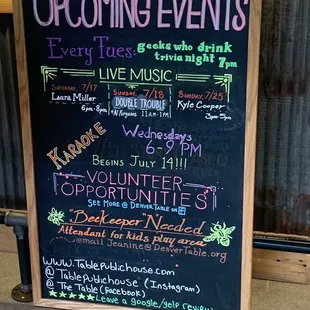 UPCOMING EVENTS
Every Tues: geeks who drink
trivia night 7pm
LIVE MUSIC
Saturday 7/17
Laura Miller
6pm-8pm
Sunday 7/18
DOUBLE TROUBLE
11AM-1PM
Sunday, 7/25
Kyle Cooper
KARAOKE
Wednesdays
6-9 PM
BEGINS JULY 14!!!
VOLUNTEER
OPPORTUNITIES
SEE MORE @ DENVERTABLE ON
"BeeKeeper" Needed
Attendant for kids play area
email Jeanine@DenverTable.org
WWW.TablePublicHouse.com
@ Tablepublichouse (Instagram)
@ The Table (Facebook)
Leave a google/yelp review